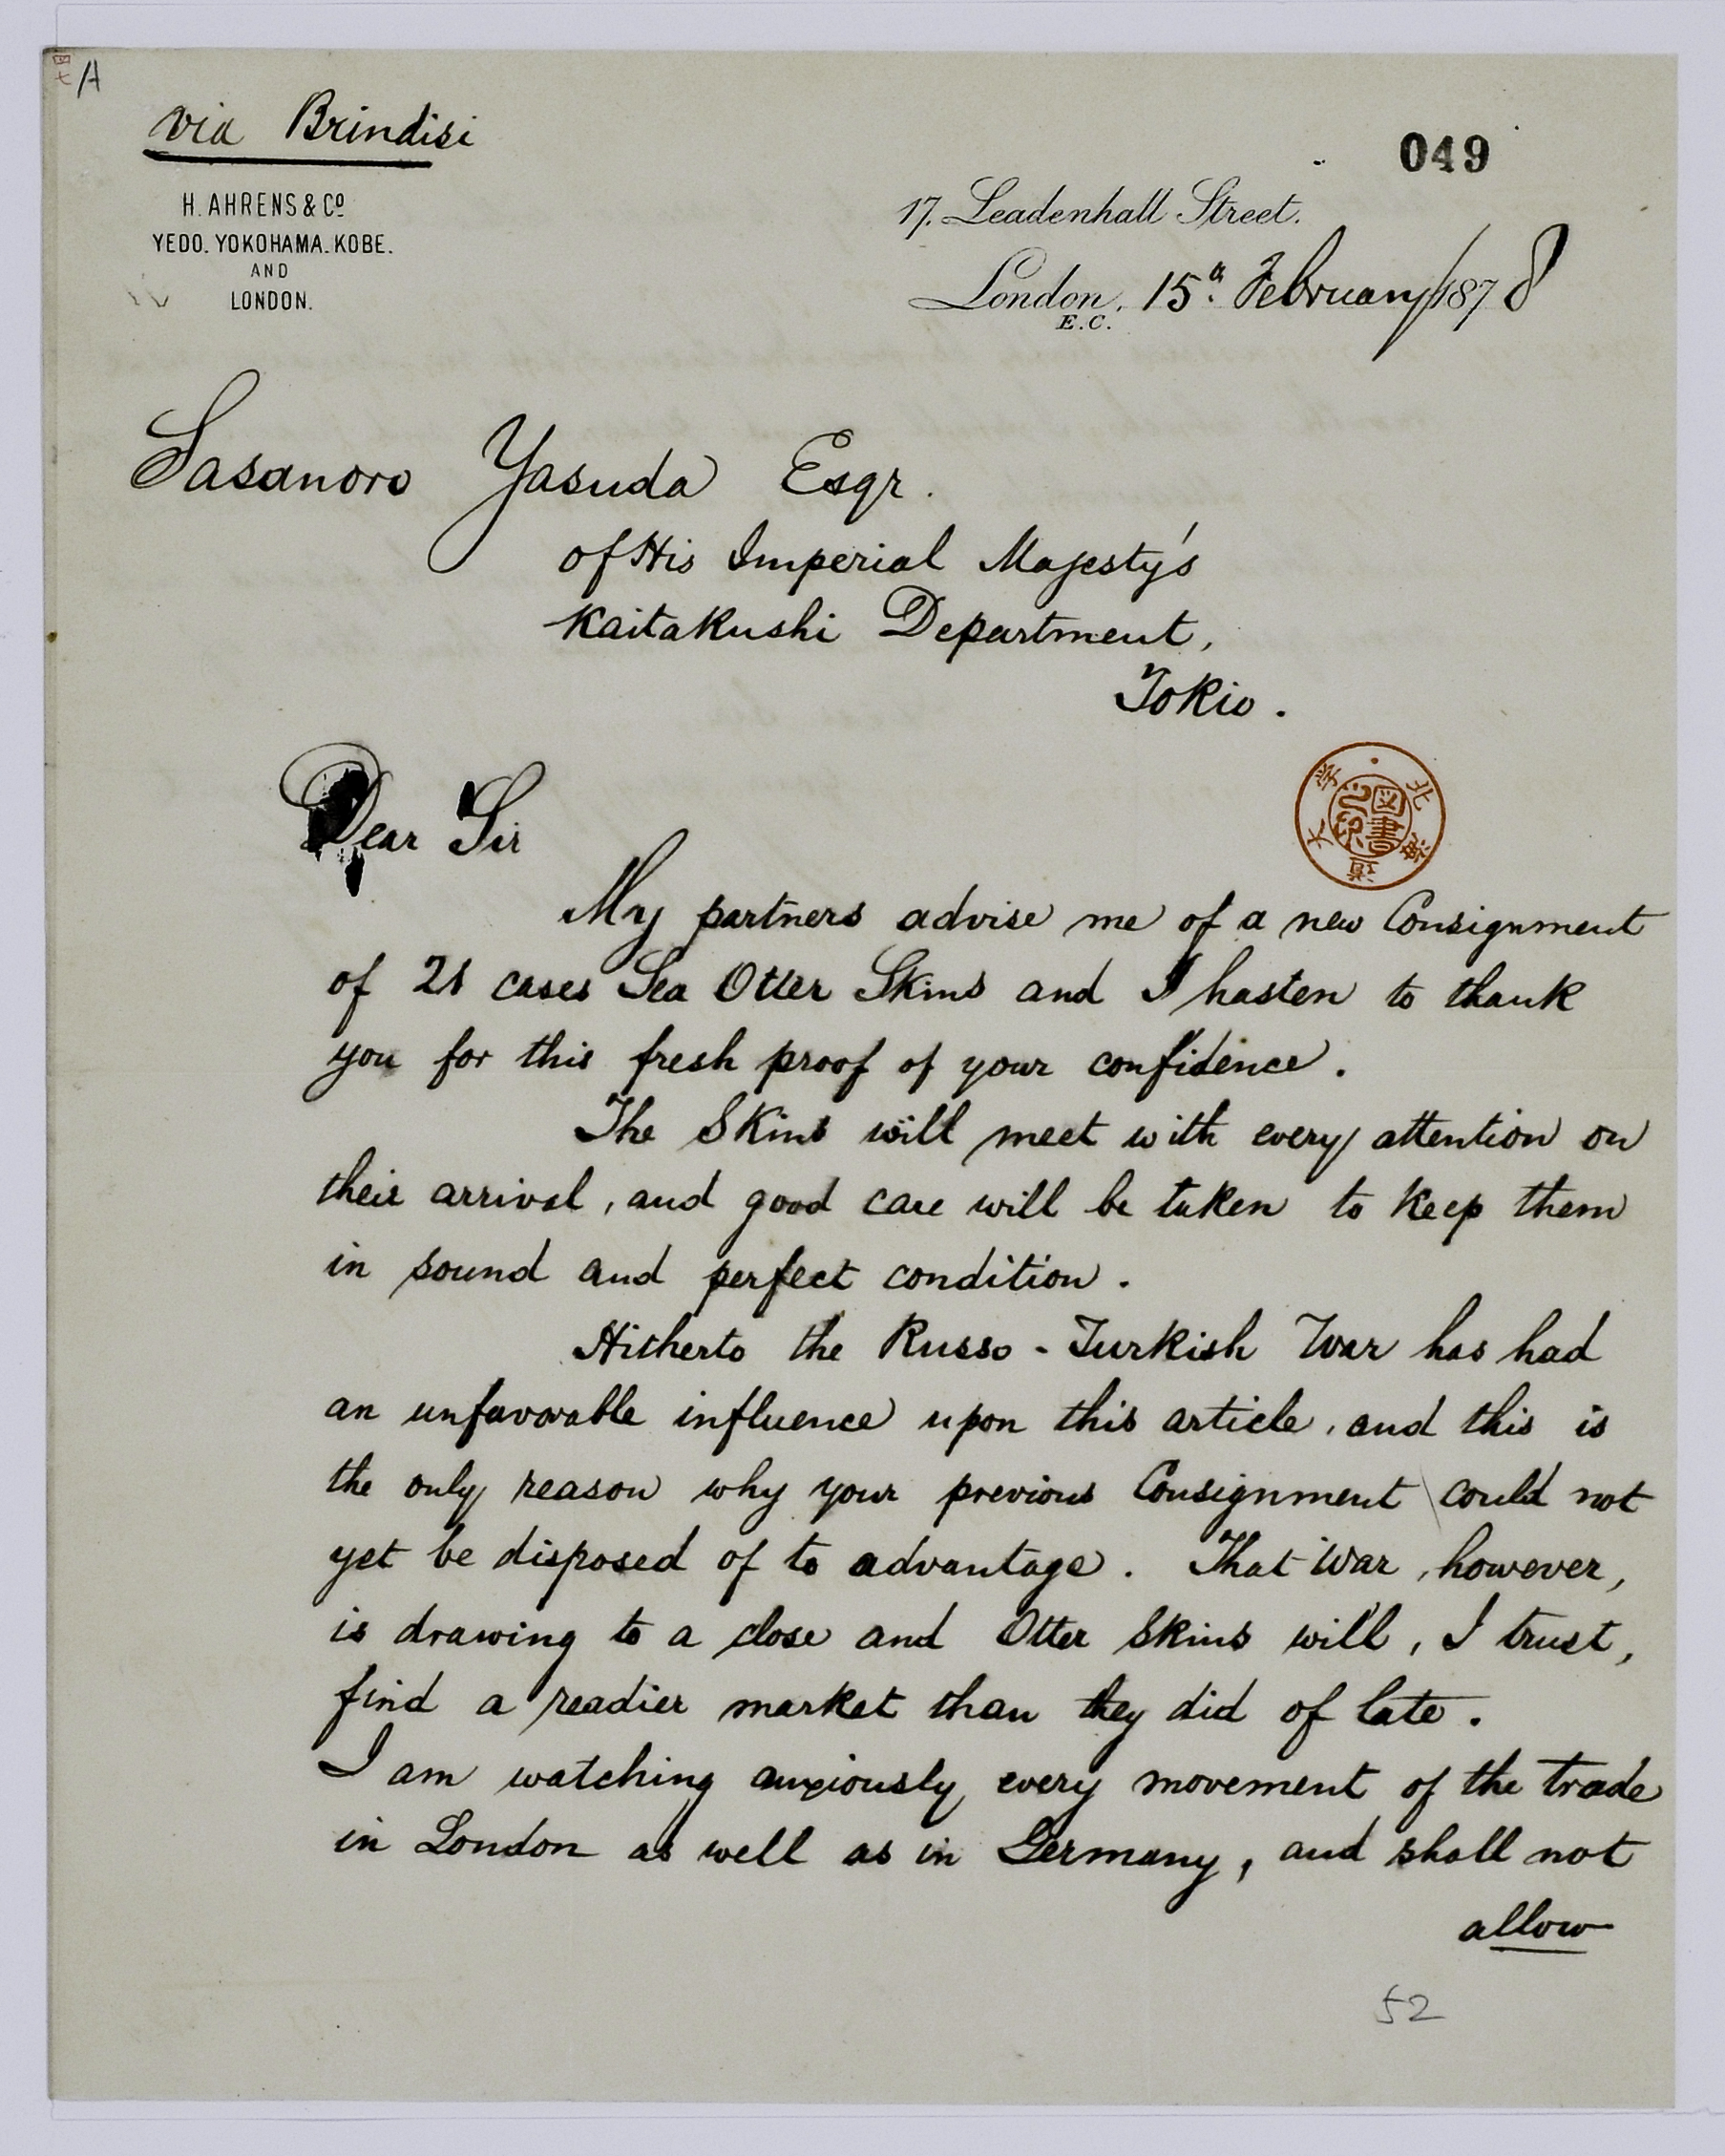 A
via Brindisi
049
H. AHRENS & Co
YEDO. YOKOHAMA. KOBE.
AND
LONDON.
17. Leadenhall Street.
London. 15th February 1878
E.C.
Sasanoro Yasuda Esqr.
of His Imperial Majesty's
Kaitakushi Department,
Tokio.
北海道大学
図書之印
Dear Sir
My partners advise me of a new Consignment
of 21 cases Sea Otter Skins and I hasten to thank
you for this fresh proof of your confidence.
The Skins will meet with every attention on
their arrival, and good care will be taken to keep them
in sound and perfect condition.
Hitherto the Russo-Turkish War has had
an unfavorable influence upon this article, and this is
the only reason why your previous Consignment could not
yet be disposed of to advantage. That War, however,
is drawing to a close and Otter Skins will, I trust,
find a readier market than they did of late.
I am watching anxiously every movement of the trade
in London as well as in Germany, and shall not
allow
52